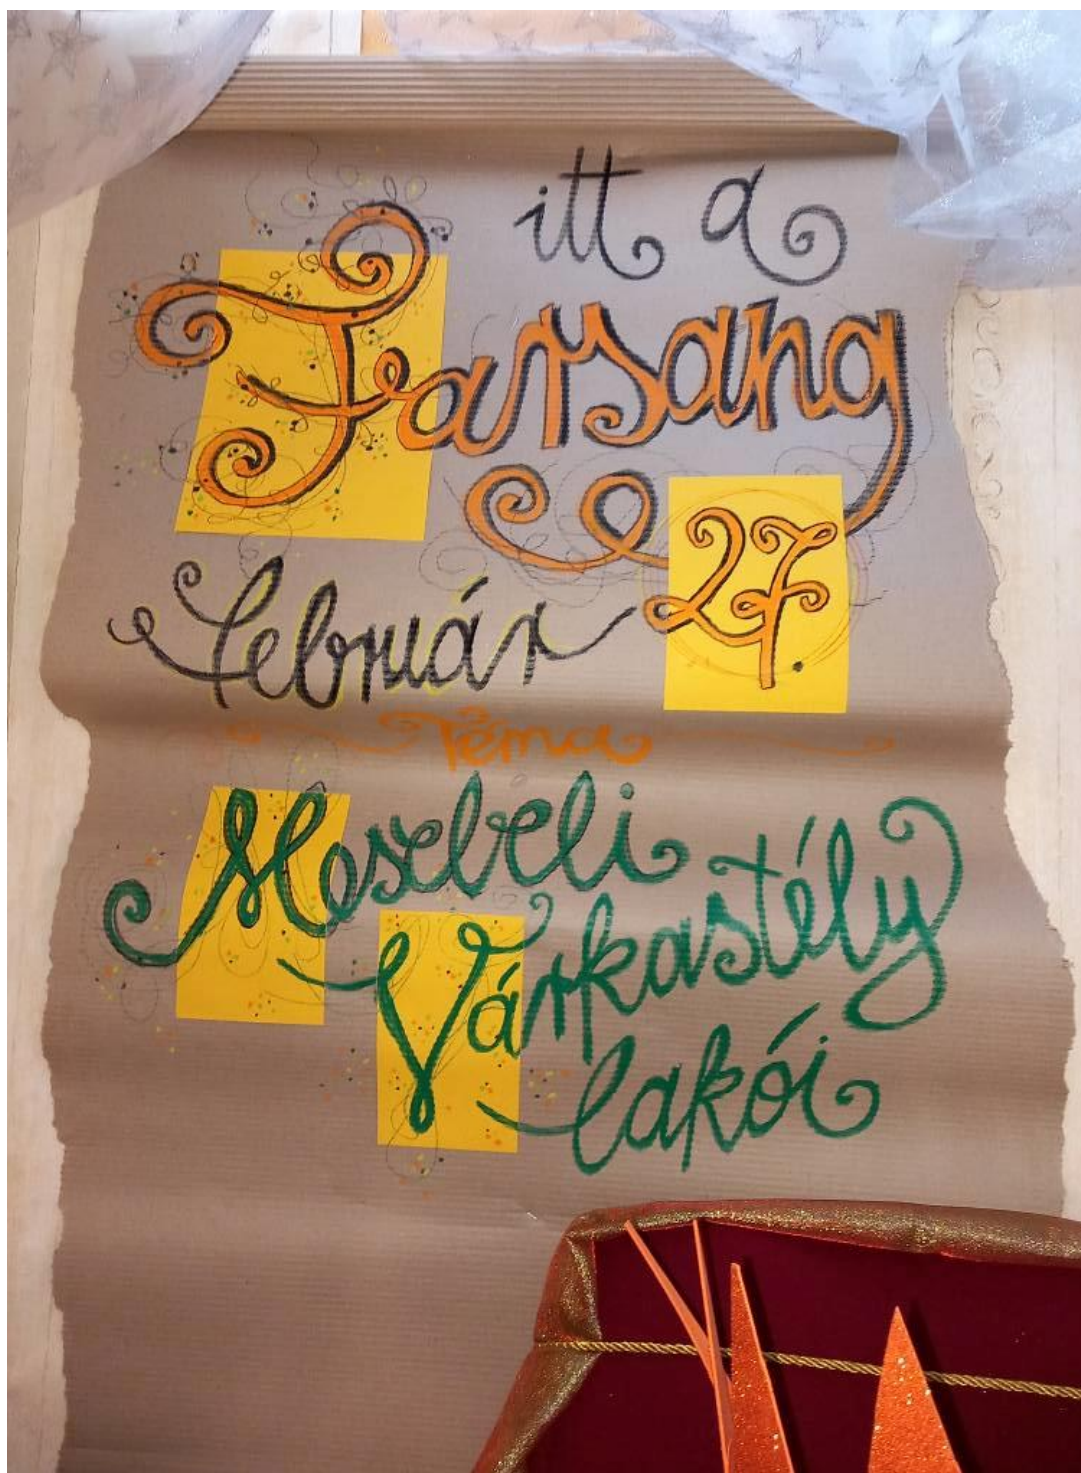 itt a
Farsang
február 27.
Téma
Mesebeli
Várkastély
lakói